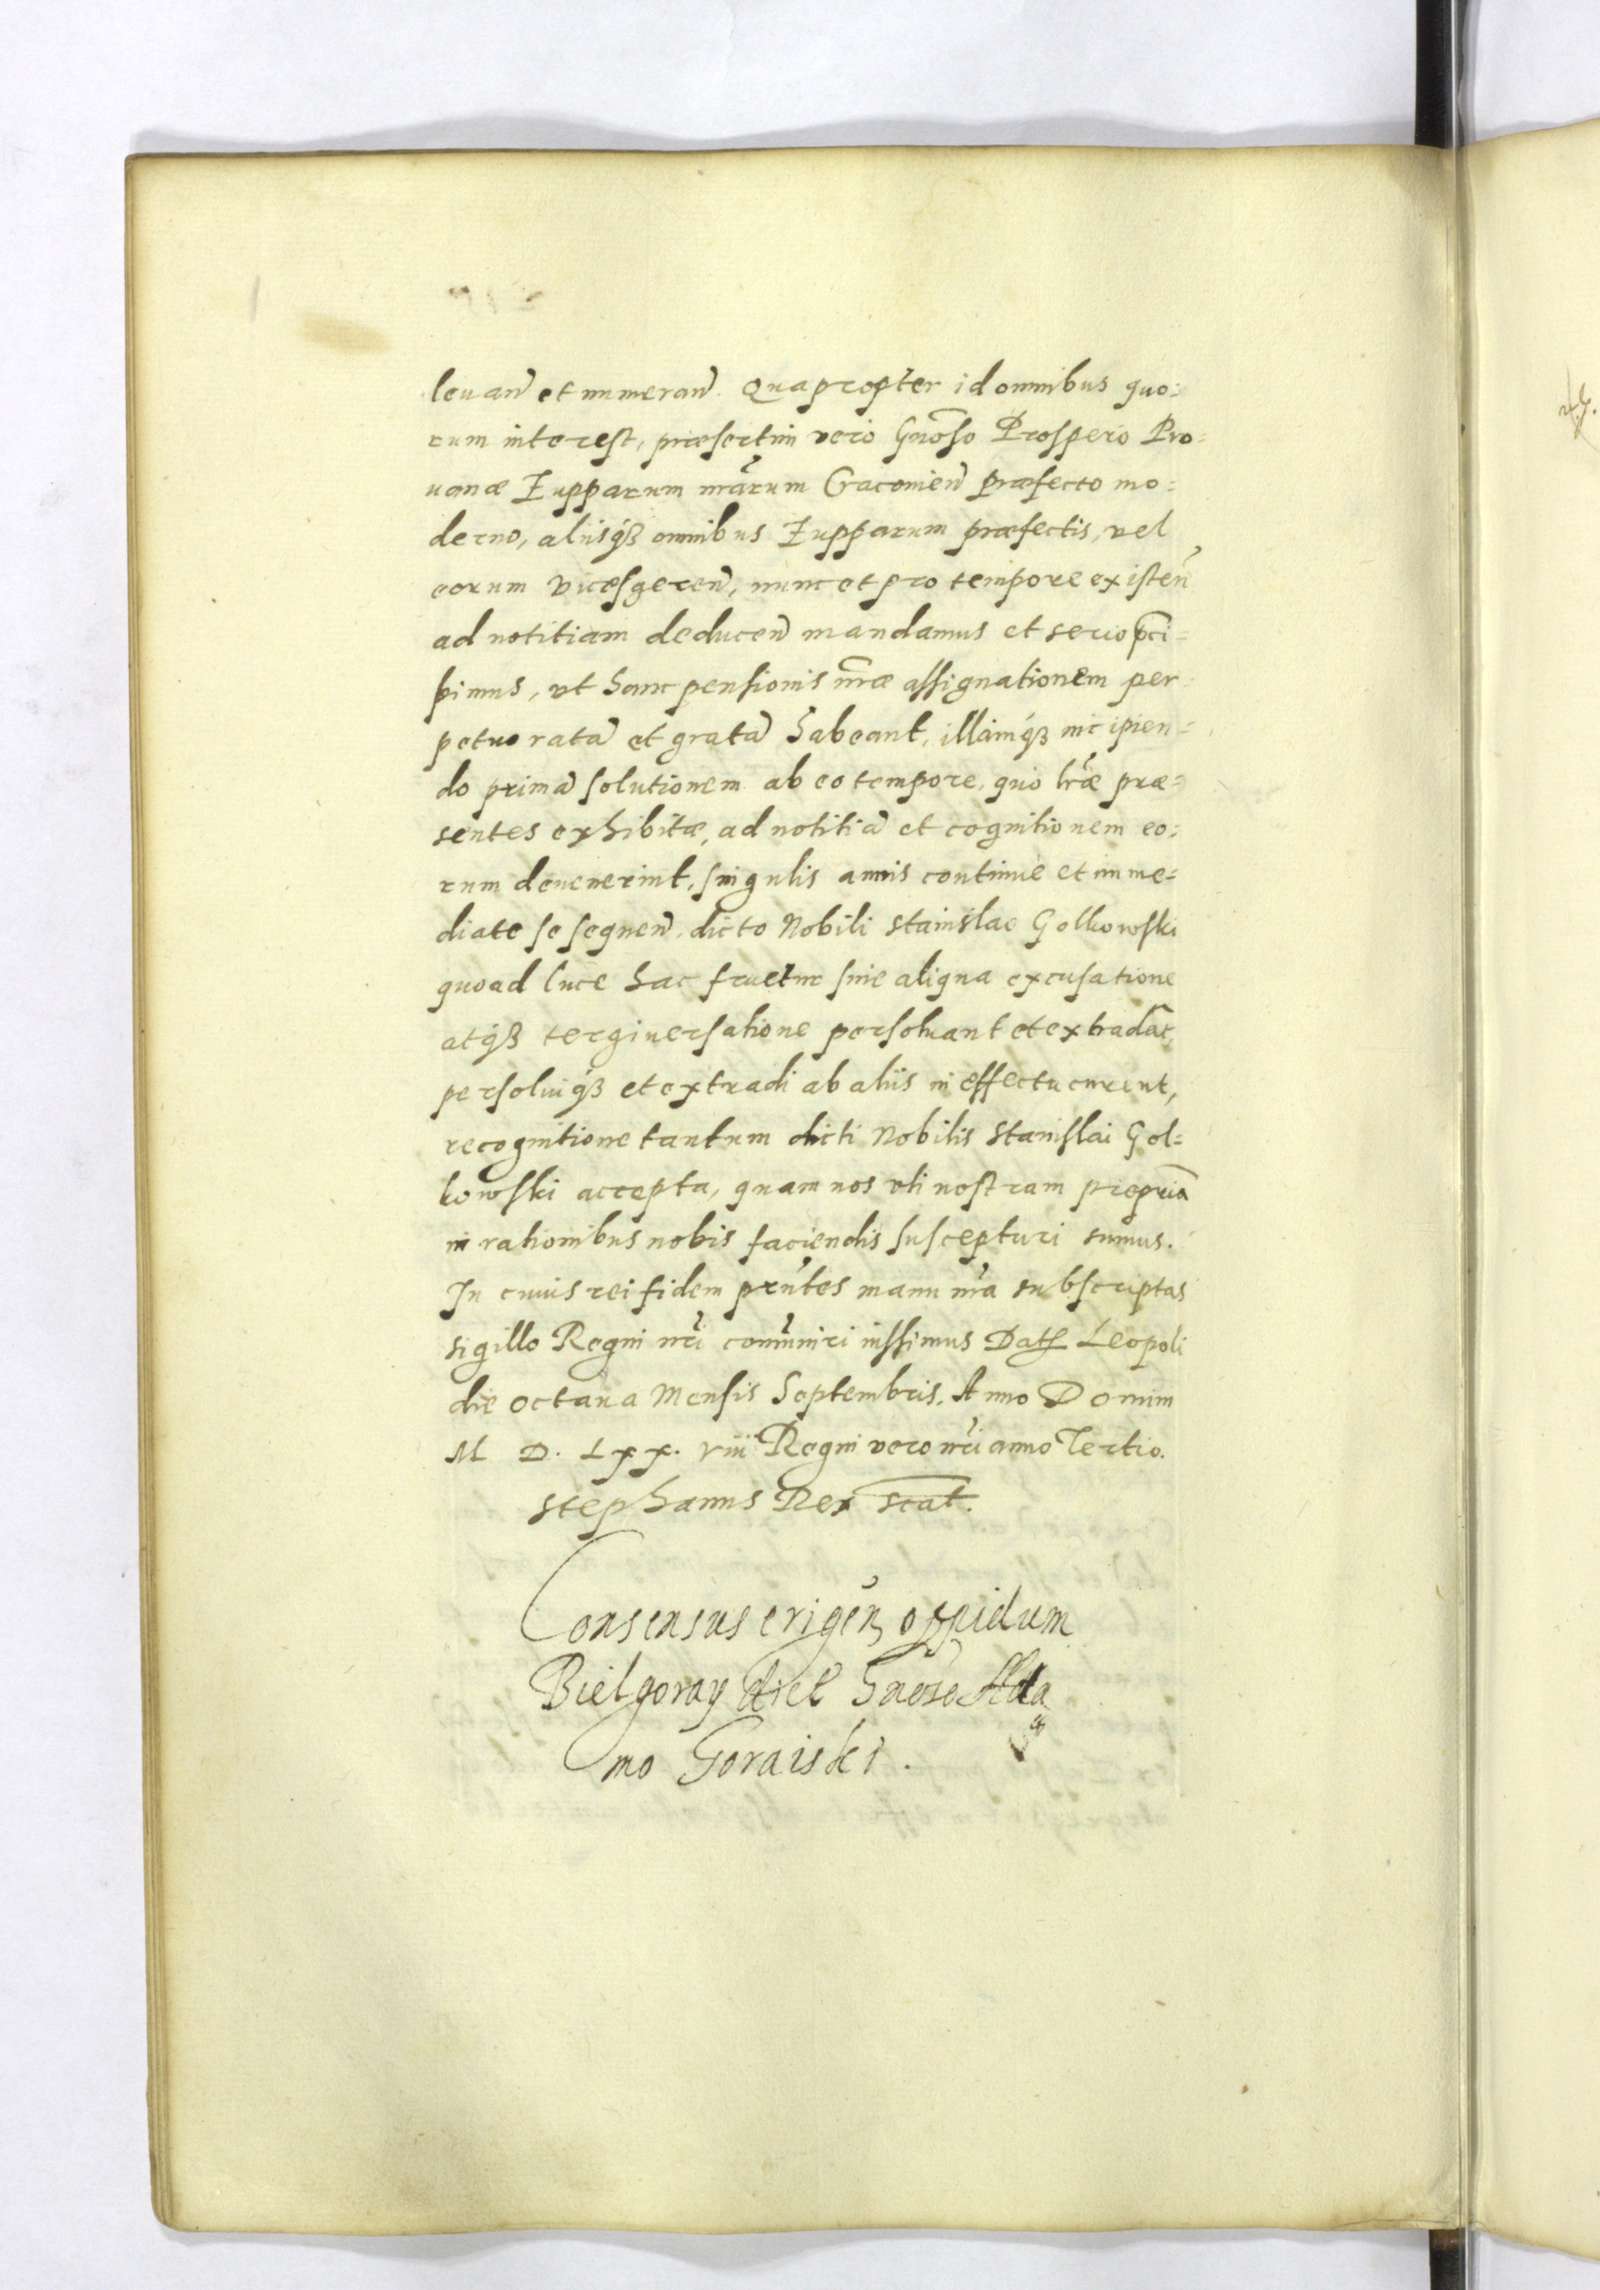 leuan̄ et numeran̄. Quapropter id omnibus quo:
rum interest, præsertim vero Gnōso Prospero Pro:
uanæ Zupparum nr̄arum Cracouien̄ præfecto mo:
derno, aliisqȝ omnibus Zupparum præfectis, vel
eorum vicesgeren̄, nunc et pro tempore existen̄
ad notitiam deducen̄ mandamus et serio p̄ci=
pimus, vt hanc pensionis nr̄æ assignationem per:
petuo ratā et gratā habeant, illamqȝ incipien=
do primā solutionem ab eo tempore, quo lr̄æ præ=
sentes exhibitæ, ad notitiā et cognitionem eo:
rum deuenerint, singulis annis continue et imme=
diate se sequen̄. dicto Nobili Stanislao Golkowski
quoad luce hac fruetur sine aliqua excusatione
atqȝ tergiuersatione persoluant et extradāt,
persoluiqȝ et extradi ab aliis in effectu curent,
recognitione tantum dicti Nobilis Stanislai Gol=
kowski accepta, quam nos vti nostram propriā
in rationibus nobis faciendis suscepturi sumus.
In cuius rei fidem prn̄tes manu nr̄a subscriptas
sigillo Regni nr̄i com̄uniri iussimus Dat Leopoli
die octaua Mensis Septembris. Anno Domini
M D. Lxx. viii Regni vero nr̄i anno Tertio.
Stephanus Rex scat.
Consensus erigen̄ oppidum
Bielgoray
Gnoso Ada
mo Goraiski.